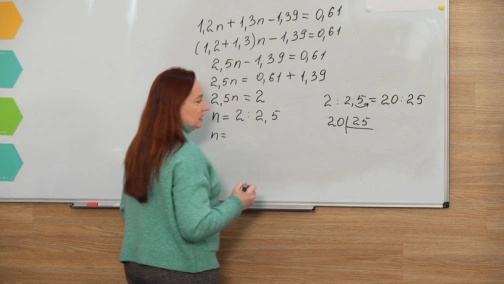 1,2n + 1,3n - 1,39 = 0,61
(1,2 + 1,3)n - 1,39 = 0,61
2,5n - 1,39 = 0,61
2,5n = 0,61 + 1,39
2,5n = 2
n = 2 : 2,5
n =
2 : 2,5 = 20 : 25
20 | 25